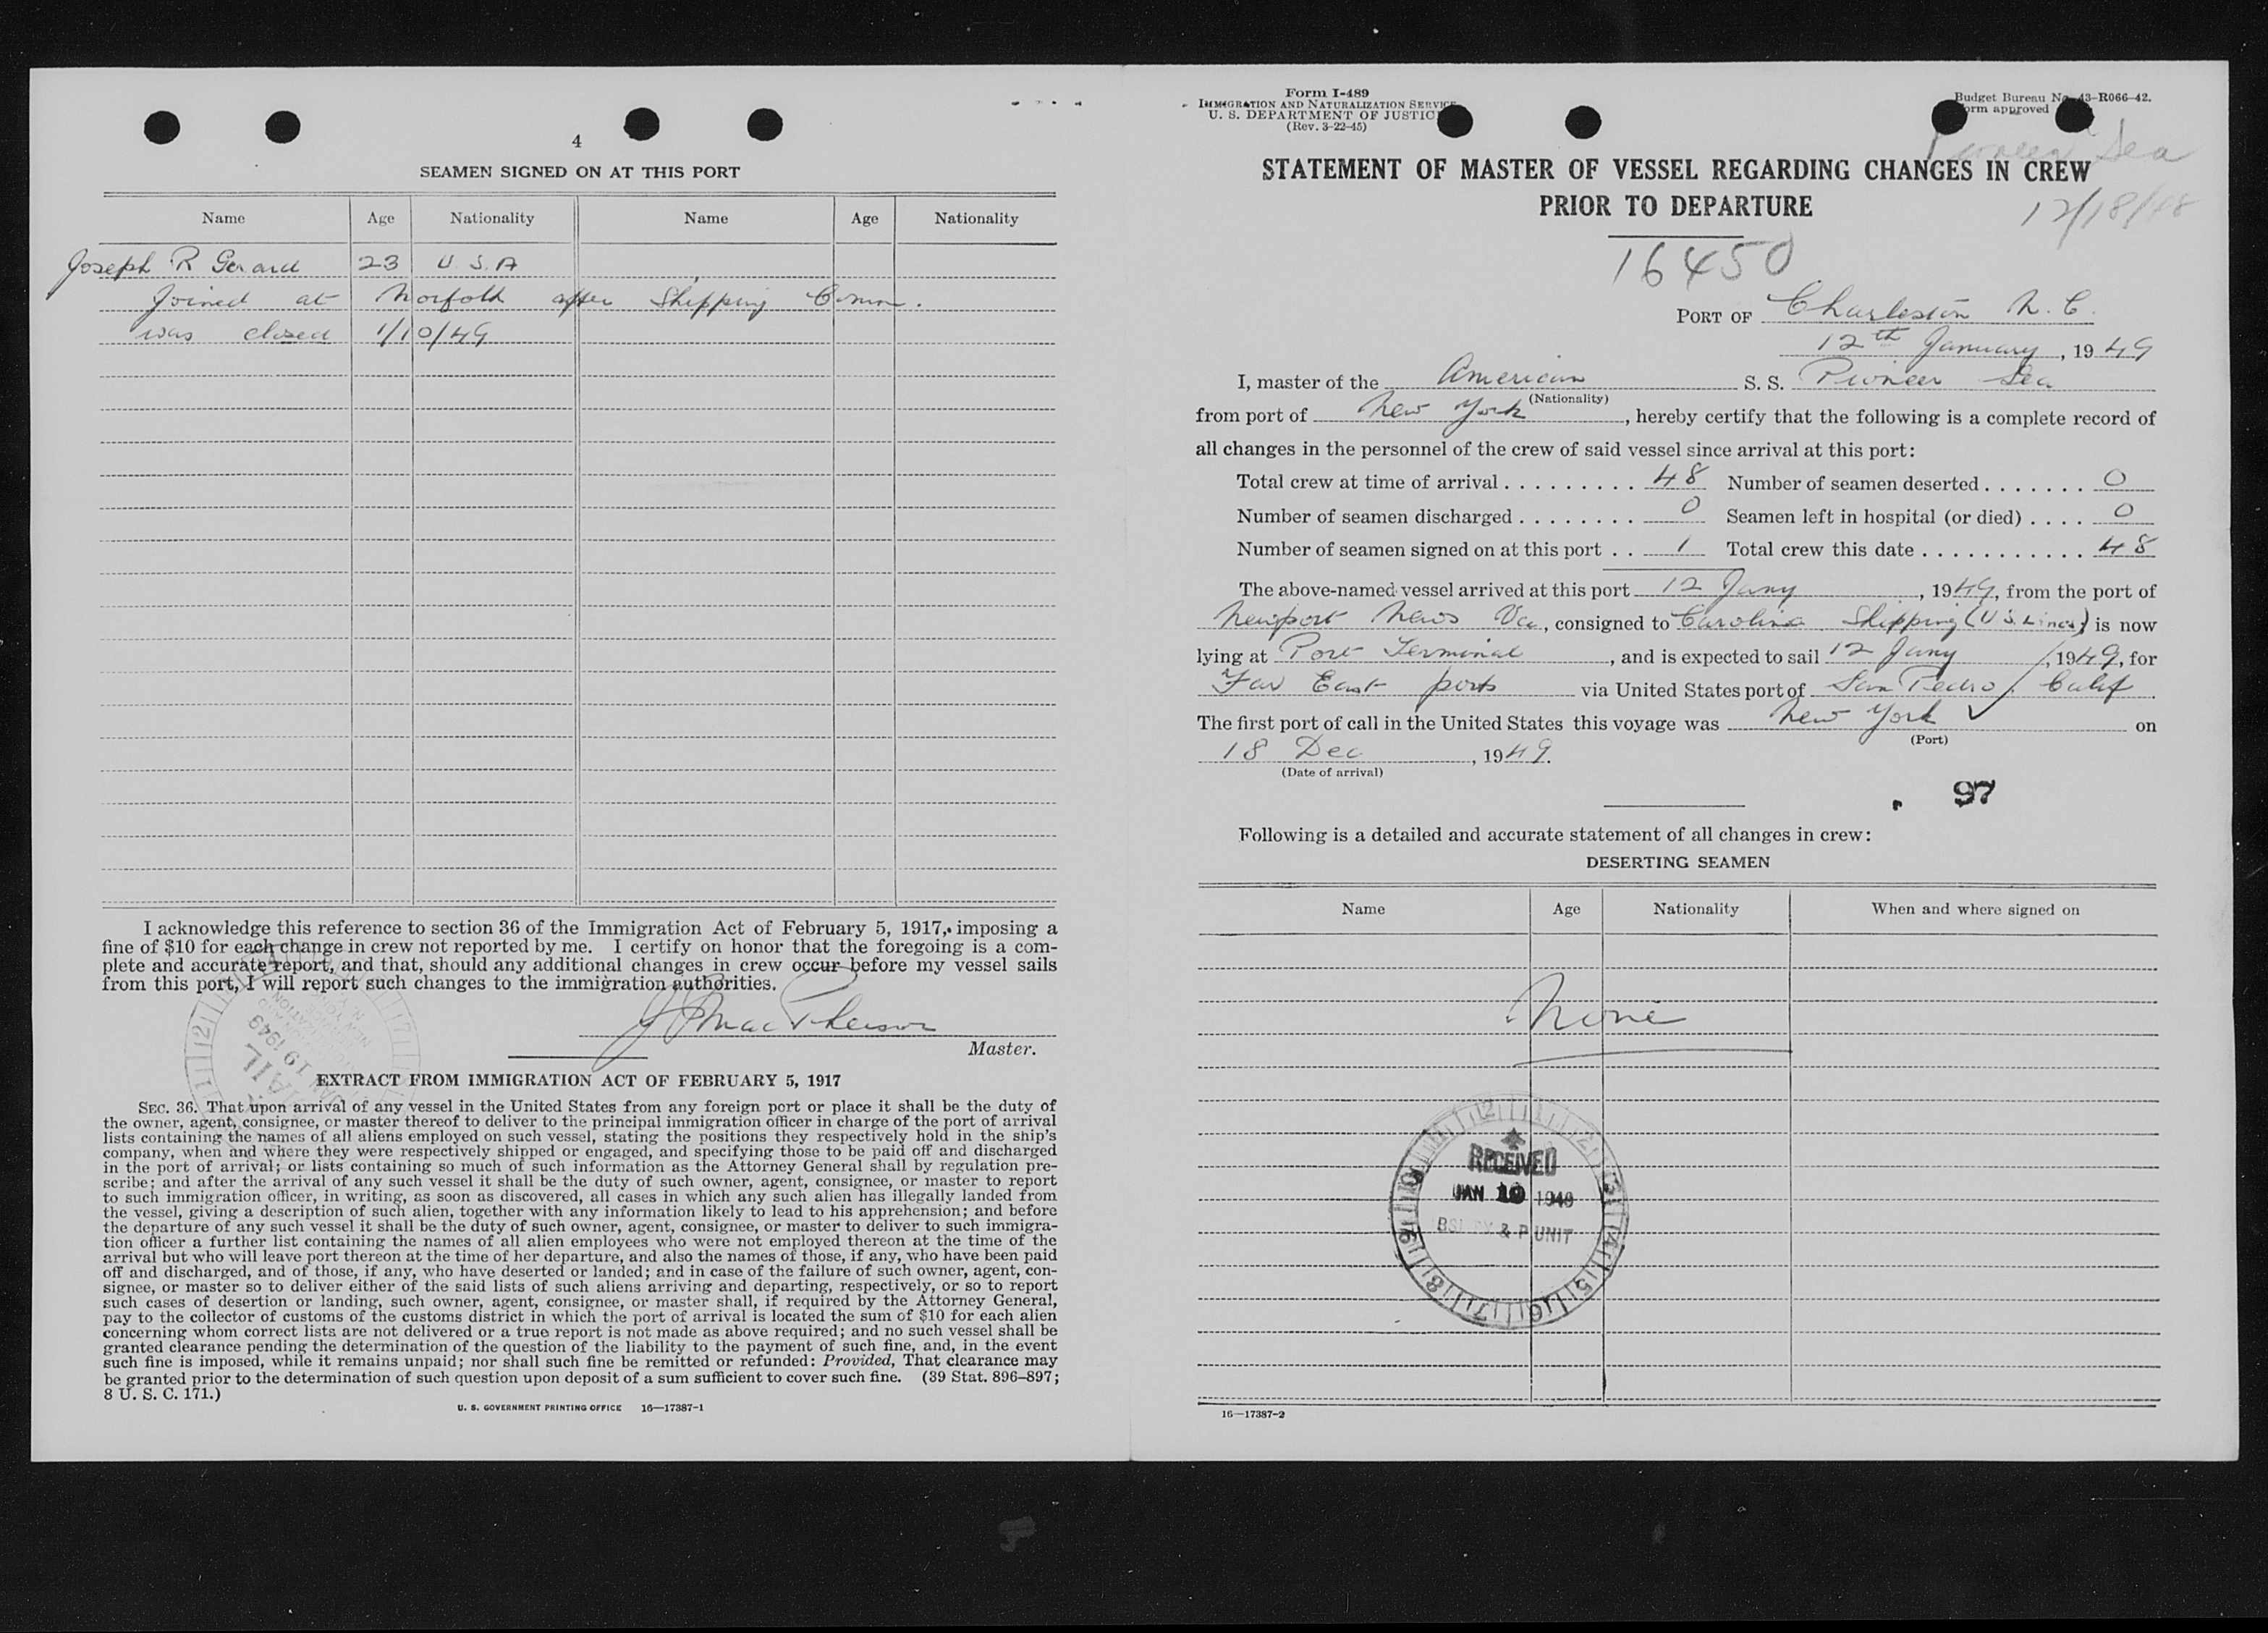 4
SEAMEN SIGNED ON AT THIS PORT
Name Age Nationality Name Age Nationality
Joseph R Gerard 23 U.S.A
Joined at Norfolk after Shipping Comm.
was closed 1/10/49
I acknowledge this reference to section 36 of the Immigration Act of February 5, 1917, imposing a
fine of $10 for each change in crew not reported by me. I certify on honor that the foregoing is a com-
plete and accurate report, and that, should any additional changes in crew occur before my vessel sails
from this port, I will report such changes to the immigration authorities.
MacPherson
Master.
19 1949
EXTRACT FROM IMMIGRATION ACT OF FEBRUARY 5, 1917
SEC. 36. That upon arrival of any vessel in the United States from any foreign port or place it shall be the duty of
the owner, agent, consignee, or master thereof to deliver to the principal immigration officer in charge of the port of arrival
lists containing the names of all aliens employed on such vessel, stating the positions they respectively hold in the ship's
company, when and where they were respectively shipped or engaged, and specifying those to be paid off and discharged
in the port of arrival; or lists containing so much of such information as the Attorney General shall by regulation pre-
scribe; and after the arrival of any such vessel it shall be the duty of such owner, agent, consignee, or master to report
to such immigration officer, in writing, as soon as discovered, all cases in which any such alien has illegally landed from
the vessel, giving a description of such alien, together with any information likely to lead to his apprehension; and before
the departure of any such vessel it shall be the duty of such owner, agent, consignee, or master to deliver to such immigra-
tion officer a further list containing the names of all alien employees who were not employed thereon at the time of the
arrival but who will leave port thereon at the time of her departure, and also the names of those, if any, who have been paid
off and discharged, and of those, if any, who have deserted or landed; and in case of the failure of such owner, agent, con-
signee, or master so to deliver either of the said lists of such aliens arriving and departing, respectively, or so to report
such cases of desertion or landing, such owner, agent, consignee, or master shall, if required by the Attorney General,
pay to the collector of customs of the customs district in which the port of arrival is located the sum of $10 for each alien
concerning whom correct lists are not delivered or a true report is not made as above required; and no such vessel shall be
granted clearance pending the determination of the question of the liability to the payment of such fine, and, in the event
such fine is imposed, while it remains unpaid; nor shall such fine be remitted or refunded: Provided, That clearance may
be granted prior to the determination of such question upon deposit of a sum sufficient to cover such fine. (39 Stat. 896–897;
8 U. S. C. 171.)
U. S. GOVERNMENT PRINTING OFFICE 16—17387-1
Form I-489
IMMIGRATION AND NATURALIZATION SERVICE
U. S. DEPARTMENT OF JUSTICE
(Rev. 3-22-45)
Budget Bureau No. 43-R066-42.
Form approved
Pioneer Sea
12/18/48
STATEMENT OF MASTER OF VESSEL REGARDING CHANGES IN CREW
PRIOR TO DEPARTURE
16450
PORT OF Charleston N. C.
12th January, 1949
I, master of the American S. S. Pioneer Sea
(Nationality)
from port of New York, hereby certify that the following is a complete record of
all changes in the personnel of the crew of said vessel since arrival at this port:
Total crew at time of arrival . . . . . . . . . 48 Number of seamen deserted . . . . . . . 0
Number of seamen discharged . . . . . . . . 0 Seamen left in hospital (or died) . . . . 0
Number of seamen signed on at this port . . 1 Total crew this date . . . . . . . . . . . 48
The above-named vessel arrived at this port 12 Jany, 1949, from the port of
Newport News Va, consigned to Carolina Shipping (U S. Lines) is now
lying at Port Terminal, and is expected to sail 12 Jany, 1949, for
Far East ports via United States port of San Pedro, Calif
The first port of call in the United States this voyage was New York on
(Port)
18 Dec, 1949.
(Date of arrival)
97
Following is a detailed and accurate statement of all changes in crew:
DESERTING SEAMEN
Name Age Nationality When and where signed on
None
RECEIVED
JAN 1949
& P UNIT
16—17387-2